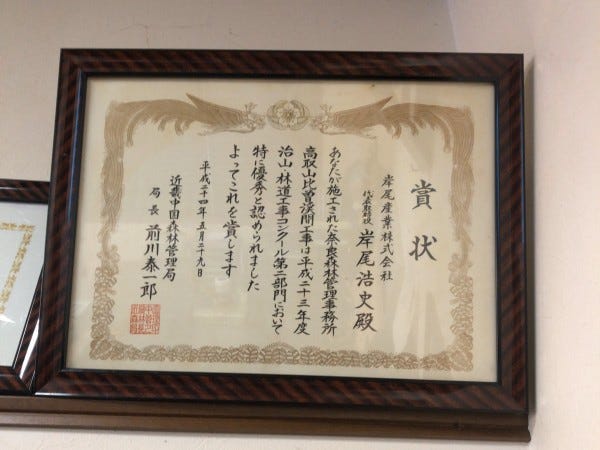 賞状
岸尾産業株式会社
代表取締役 岸尾浩史殿
あなたが施工された奈良森林管理事務所
高取山比曽渓間工事は平成二十三年度
治山・林道工事コンクール第二部門において
特に優秀と認められました
よってこれを賞します
平成二十四年五月二十九日
近畿中国森林管理局
局長 前川泰一郎